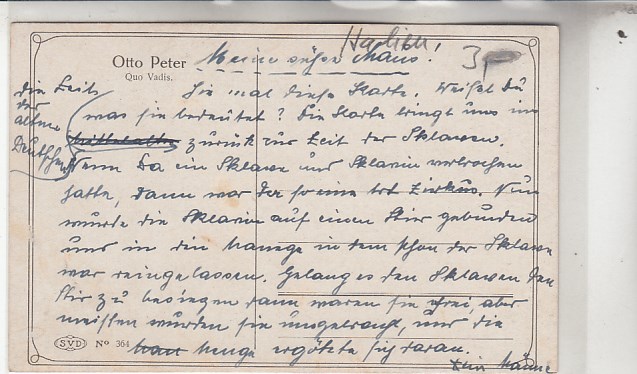 Italien!
3,-
Otto Peter
Quo Vadis.
Meine süße Maus!
die Zeit
der
alten
Deutschen
Sie mal diese Karte. Weißt Du
was sie bedeutet? Die Karte bringt uns ins
Mittelalter zurück zur Zeit der Sklaven.
Wenn da ein Sklave und Sklavin verbrochen
hatte, dann war der so eine Art Zirkus. Nun
wurde die Sklavin auf einen Stier gebunden
und in die Manege in dem schon der Sklave
war reingelassen. Gelang es den Sklaven den
Stir zu besiegen dann waren sie frei, aber
meisten wurden sie umgebracht, und die
Menge ergötzte sich daran.
SVD No 364
Dein Männe